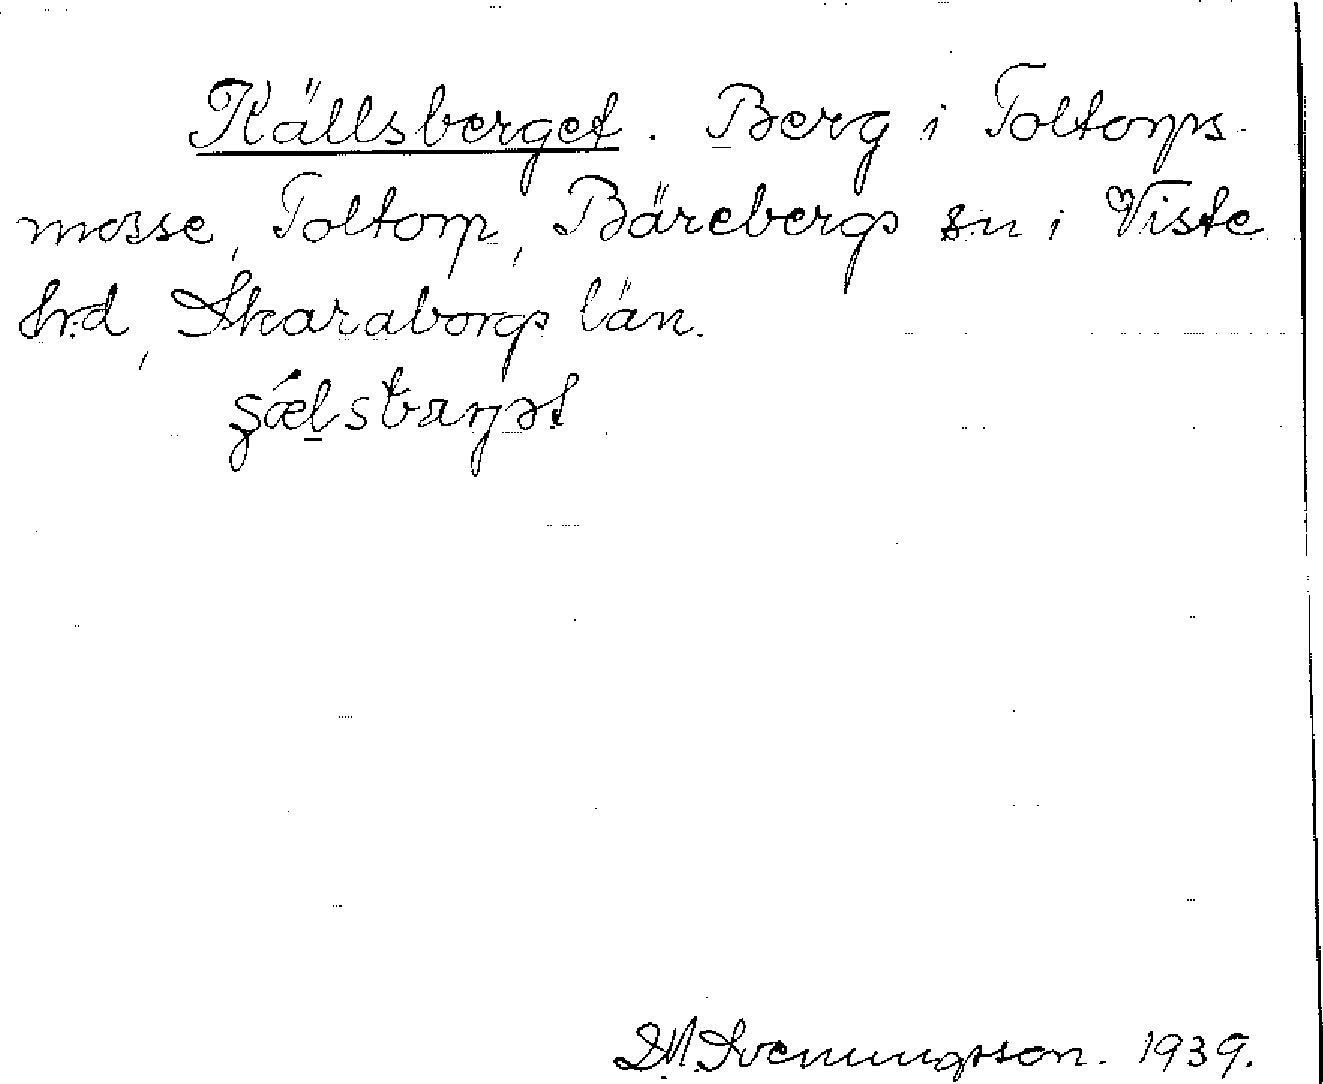 Källsberget. Berg i Toltorps-
mosse, Toltorp, Bärebergs sn i Viste
hrd, Skaraborgs län.
D.M. Svenungsson. 1939.